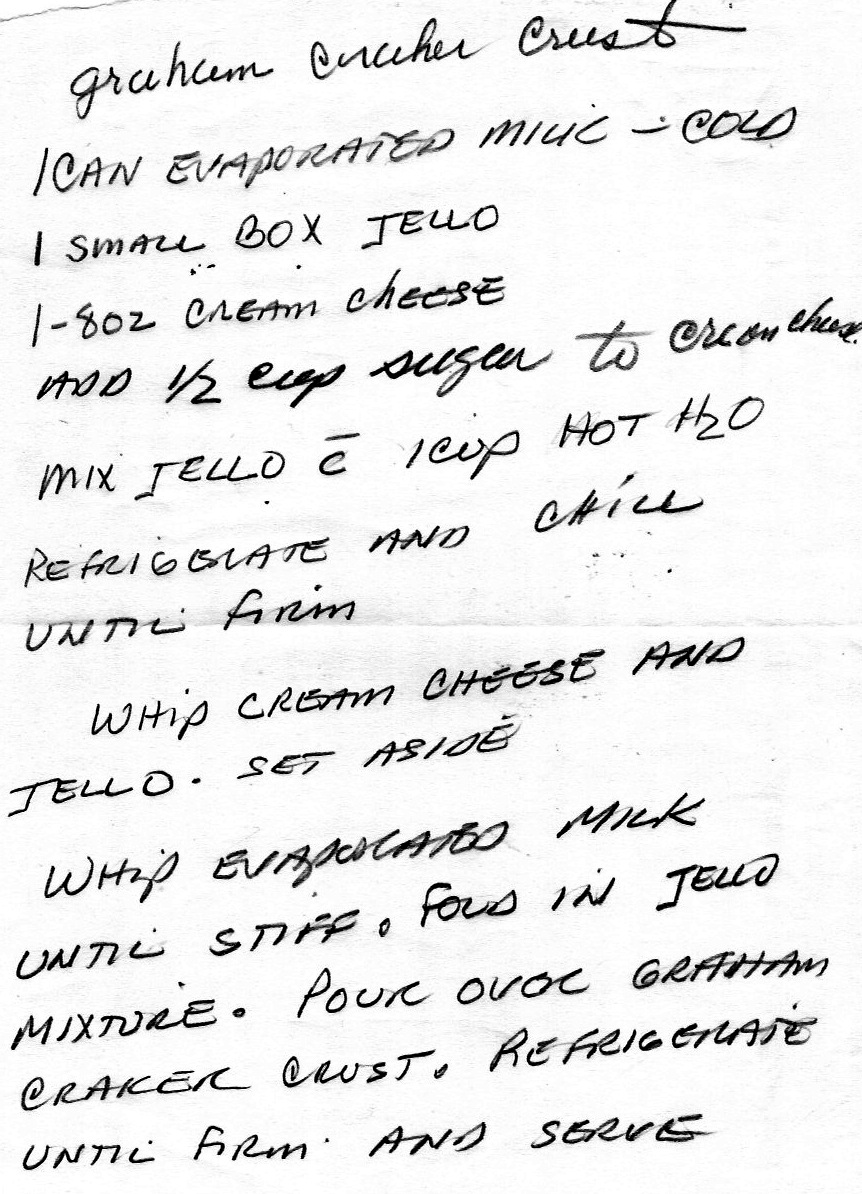 graham cracker crust
1 CAN EVAPORATED MILK - COLD
1 SMALL BOX JELLO
1-8oz CREAM CHEESE
ADD 1/2 cup sugar to cream cheese.
MIX JELLO c̄ 1 cup HOT H2O
REFRIGERATE AND CHILL
UNTIL FIRM
WHIP CREAM CHEESE AND
JELLO. SET ASIDE
WHIP EVAPORATED MILK
UNTIL STIFF. FOLD IN JELLO
MIXTURE. POUR OVER GRAHAM
CRAKER CRUST. REFRIGERATE
UNTIL FIRM AND SERVE